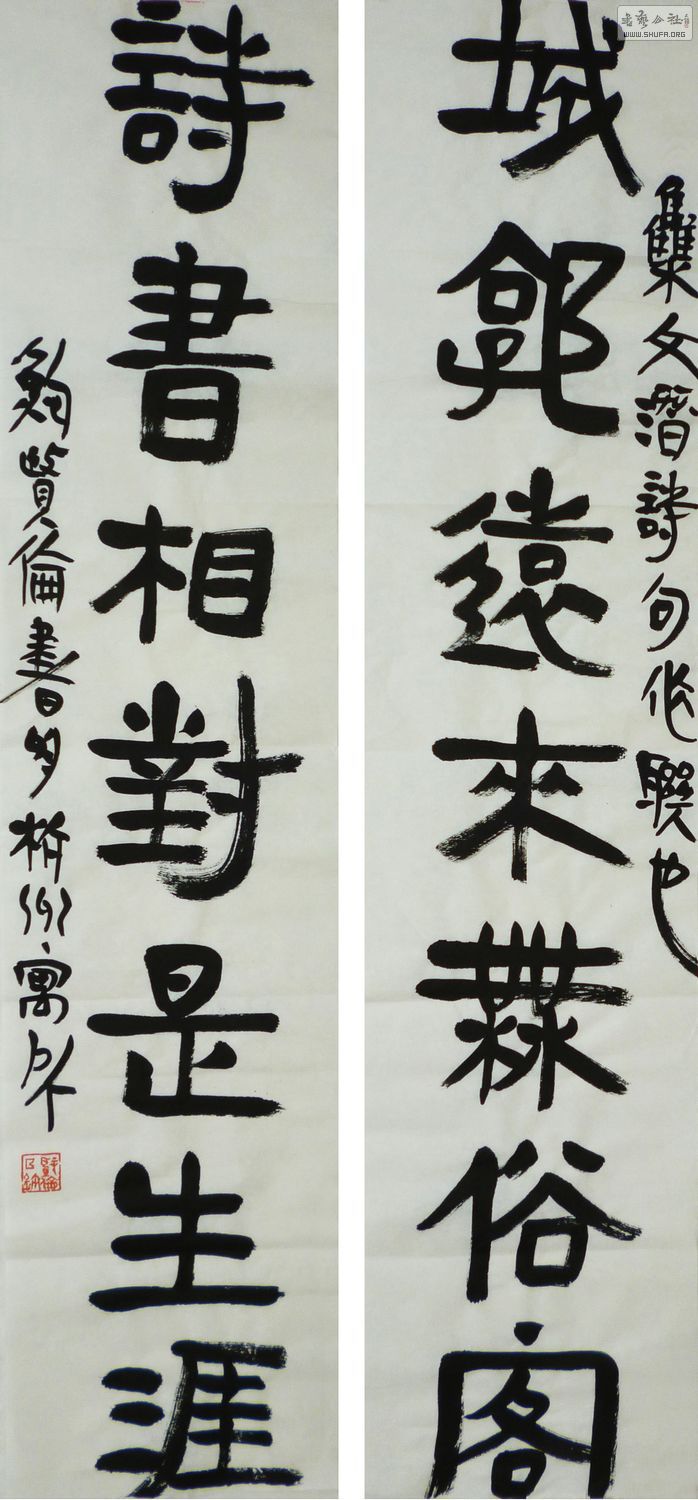 書藝公社
WWW.SHUFA.ORG
集文潛詩句作聯也
城郭遠來無俗客
詩書相對是生涯
賢倫書於州寓所